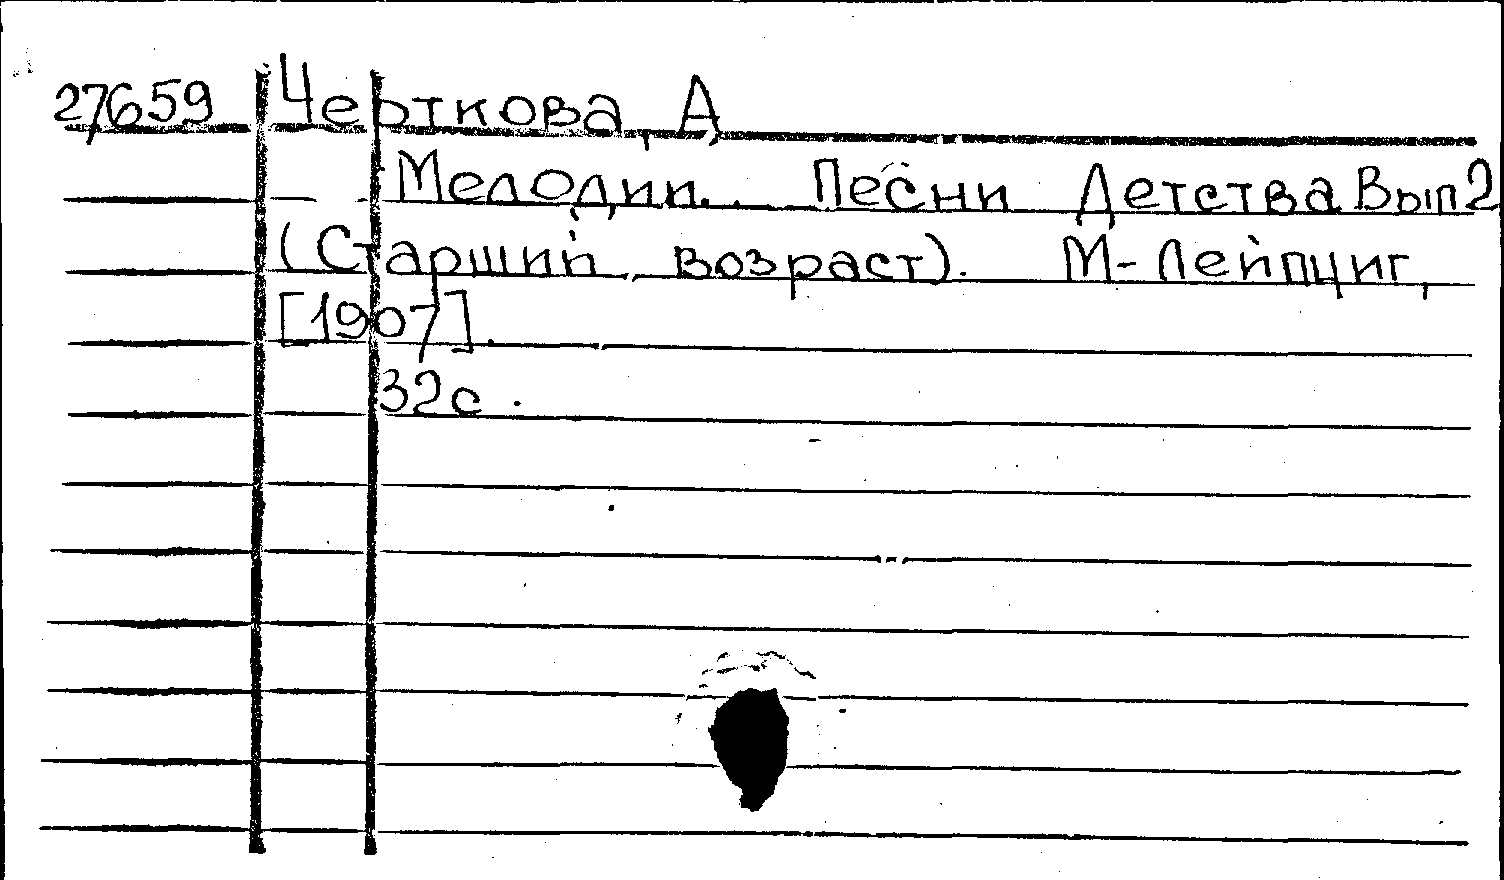 27659 Черткова, А
Мелодии. Песни Детства Вып 2
(Старший возраст). М-Лейпциг,
[1907].
32с.